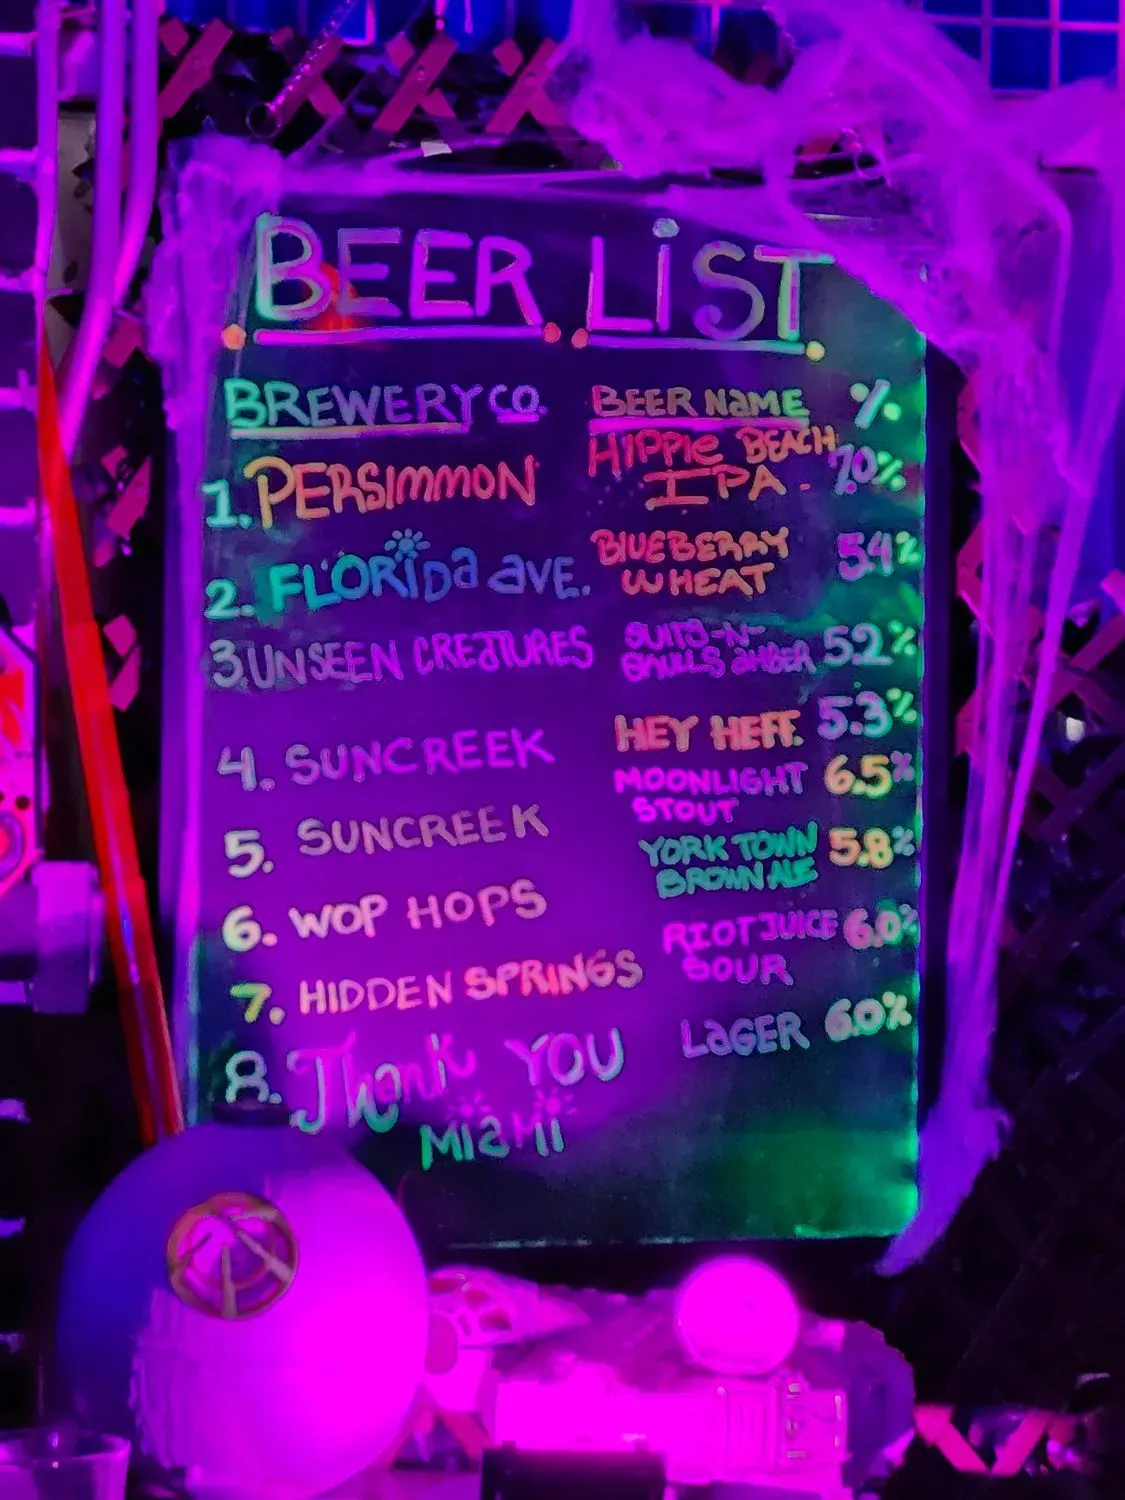 BEER LIST
BREWERY CO. BEER NAME %
1. PERSIMMON HIPPIE BEACH IPA. 7.0%
2. FLORIDA AVE. BLUEBERRY WHEAT 5.4%
3. UNSEEN CREATURES SUITS-N- SKULLS AMBER 5.2%
4. SUNCREEK HEY HEFF. 5.3%
5. SUNCREEK MOONLIGHT STOUT 6.5%
6. WOP HOPS YORK TOWN BROWN ALE 5.8%
7. HIDDEN SPRINGS RIOT JUICE SOUR 6.0%
8. Thank YOU LAGER 6.0%
MIAMI